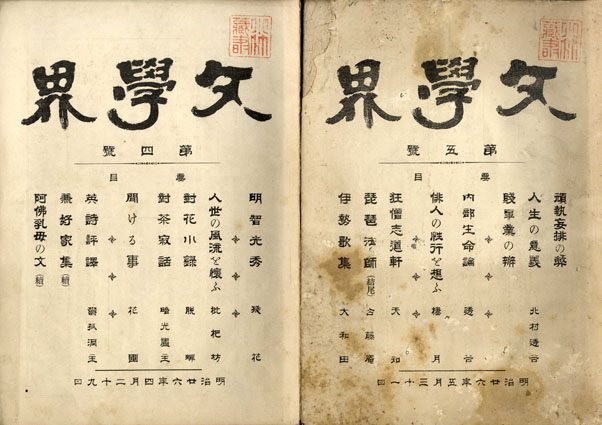 文學界
第四號
要目
明智光秀 殘花
人世の風流を懷ふ 枇杷坊
對花小錄 脱蝉
對茶寂話 暗光廬主
聞ける事 花圃
英詩評釋
兼好家集(續)
阿佛乳母の文(續)
明治廿六年四月二十九日
文學界
第五號
要目
頑執妄排の弊
人生の意義 北村透谷
賤事業の辨
内部生命論 透谷
俳人の性行を想ふ 棲月
狂僧志道軒 天知
琵琶法師(結尾) 古藤庵
伊勢歌集 大和田
明治廿六年五月三十一日